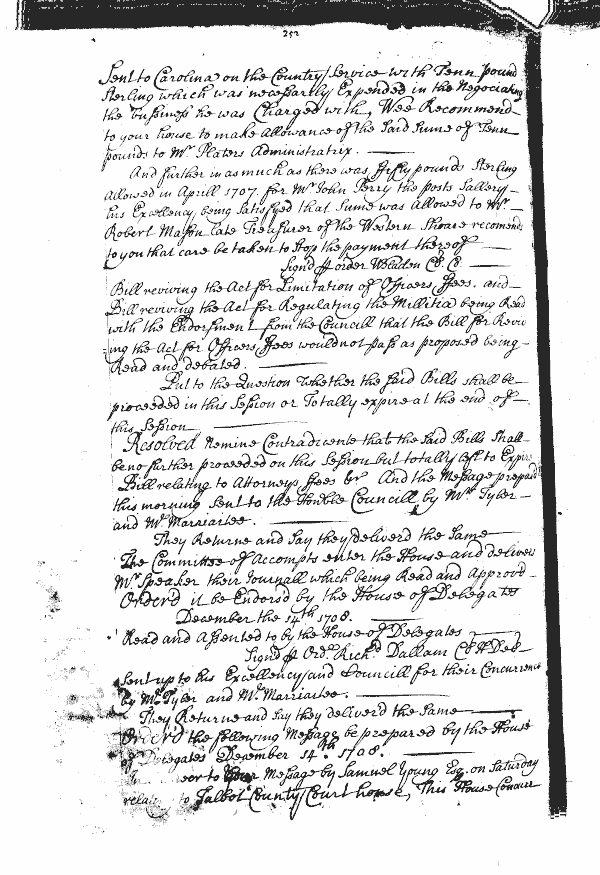 252
Sent to Carolina on the Country Service with Tenn pound
Sterling which was necessarly Expended in the Negociating
the bussiness he was Charged with, Wee Recommend
to your house to make Allowance of the Said Sume of Tenn
pounds to Mr. Platers Administratrix.
And further in as much as there was ffifty pounds Sterling
allowed in Aprill 1707. for Mr John Perry the posts Sallery
his Excellency being Satisfyed that Sume was allowed to Mr
Robert Mason late Treasurer of the Western Shoare recomends
to you that care be taken to Stop the payment thereof
Signd p order WBladen Cl. C.
Bill reviving the Act for Limitation of Officers ffees. and
Bill reviving the Act for Regulating the Millitia being Read
with the Endorsment from the Councill that the Bill for Reviv
ing the Act for Officers ffees would not pass as proposed being
Read and debated.
Put to the Question Whether the Said Bills shall be
proceeded in this Session or Totally expire at the end of
this Session
Resolved Nemine Contradicente that the Said Bills Shall
be no further proceeded on this Session but totally left to Expire
Bill relating to Attorneys ffees &c And the Message prepard
this morning Sent to the Honble Councill by Mr Tyler
and Mr. Marriartee.
They Returne and Say they deliverd the Same
The Committee of Accompts enter the House and delivers
Mr Speaker their Journall which being Read and Approvd
Orderd it be Endorsd by the House of Delegates
December the 14th 1708.
Read and Assented to by the House of Delegates
Signd p Ord. Richd Dallam Cl H Del
Sent up to his Excellency and Councill for their Concurrence
by Mr. Tyler and Mr. Marriartee.
They Returne and Say they deliverd the Same
Orderd the following Message be prepared by the House
of Delegates December 14th. 1708.
to your Message by Samuel Young Esq. on Saturday
to Talbot County Court house, This House Concurr